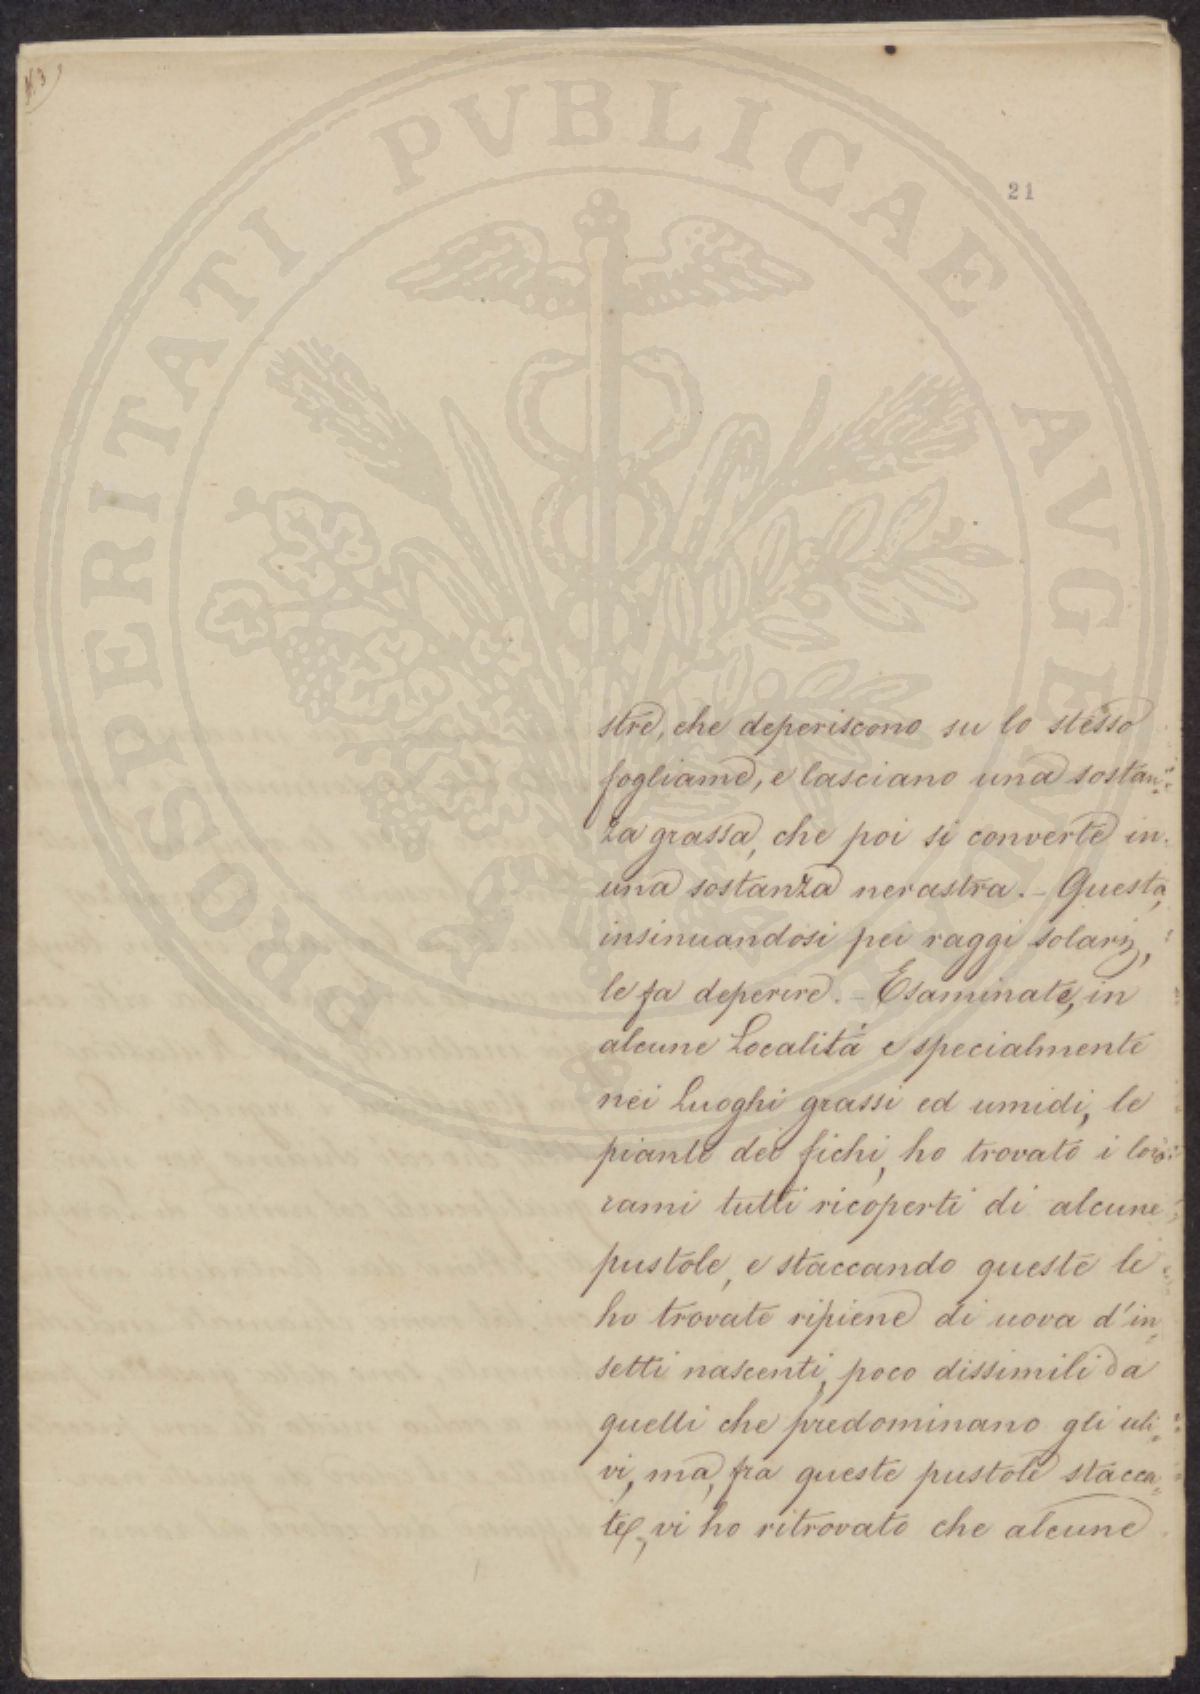 N. 3
21
PROSPERITATI PVBLICAE AVGENDAE
stre, che deperiscono su lo stesso
fogliame, e lasciano una sostan-
za grassa, che poi si converte in
una sostanza nerastra. - Questa,
insinuandosi pei raggi solarij,
le fa deperire. - Esaminate, in
alcune Località e specialmente
nei Luoghi grassi ed umidi, le
piante dei fichi, ho trovato i loro
rami tutti ricoperti di alcune
pustole, e staccando queste le
ho trovate ripiene di uova d'in-
setti nascenti, poco dissimili da
quelli che predominano gli uli-
vi, ma, fra queste pustole stacca-
te, vi ho ritrovato che alcune